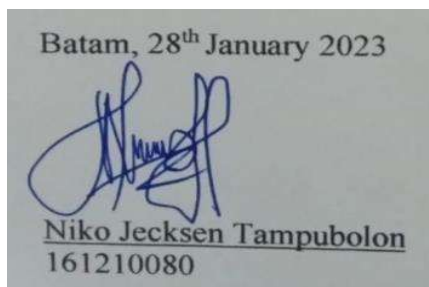 Batam, 28th January 2023
Niko Jecksen Tampubolon
161210080